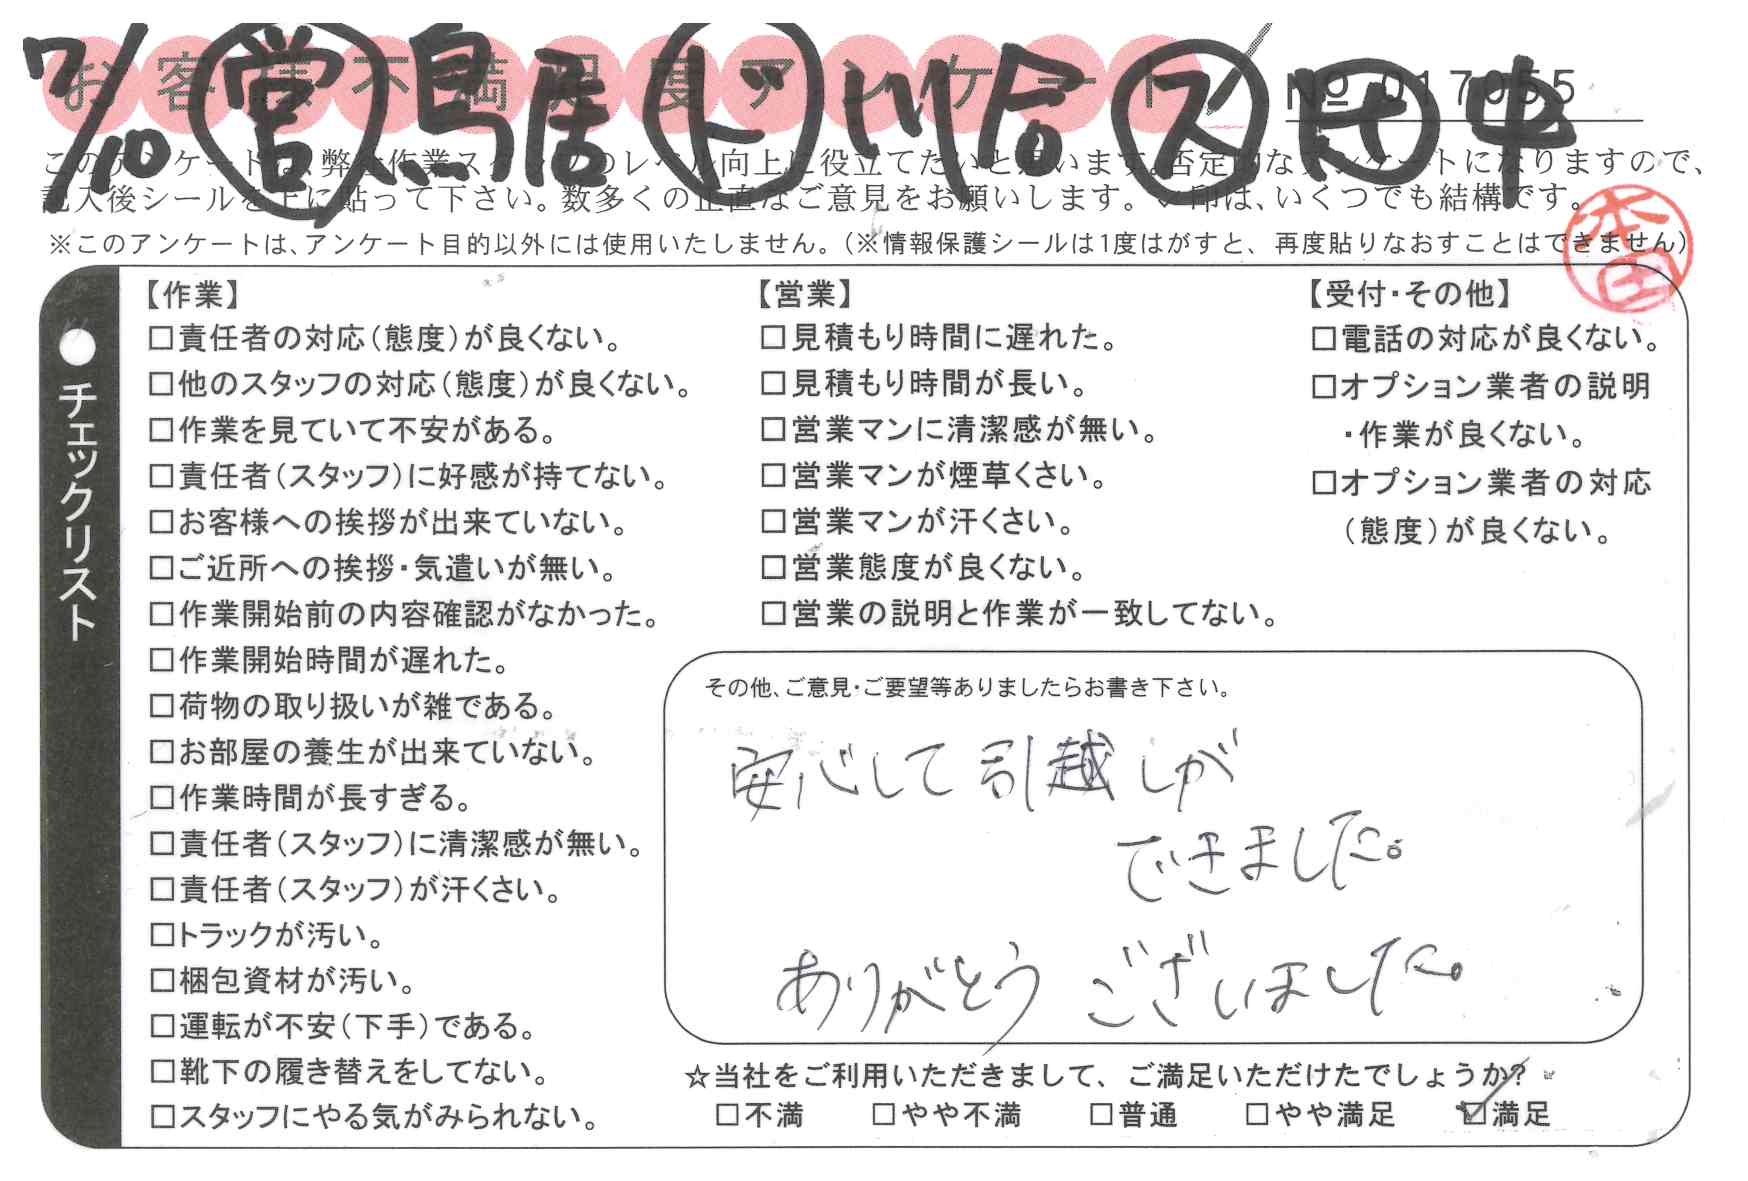 7/10 営 鳥居 ド 川合 ス 田中
お客様不満足度アンケート
№ 017055
このアンケートは、弊社作業スタッフのレベル向上に役立てたいと思います。否定的なアンケートになりますので、
記入後シールを上に貼って下さい。数多くの正直なご意見をお願いします。✓印は、いくつでも結構です。
※このアンケートは、アンケート目的以外には使用いたしません。（※情報保護シールは1度はがすと、再度貼りなおすことはできません）
本田
●チェックリスト
【作業】
□責任者の対応（態度）が良くない。
□他のスタッフの対応（態度）が良くない。
□作業を見ていて不安がある。
□責任者（スタッフ）に好感が持てない。
□お客様への挨拶が出来ていない。
□ご近所への挨拶・気遣いが無い。
□作業開始前の内容確認がなかった。
□作業開始時間が遅れた。
□荷物の取り扱いが雑である。
□お部屋の養生が出来ていない。
□作業時間が長すぎる。
□責任者（スタッフ）に清潔感が無い。
□責任者（スタッフ）が汗くさい。
□トラックが汚い。
□梱包資材が汚い。
□運転が不安（下手）である。
□靴下の履き替えをしてない。
□スタッフにやる気がみられない。
【営業】
□見積もり時間に遅れた。
□見積もり時間が長い。
□営業マンに清潔感が無い。
□営業マンが煙草くさい。
□営業マンが汗くさい。
□営業態度が良くない。
□営業の説明と作業が一致してない。
【受付・その他】
□電話の対応が良くない。
□オプション業者の説明
・作業が良くない。
□オプション業者の対応
（態度）が良くない。
その他、ご意見・ご要望等ありましたらお書き下さい。
安心して引越しが
できました。
ありがとうございました。
☆当社をご利用いただきまして、ご満足いただけたでしょうか？
□不満 □やや不満 □普通 □やや満足 ☑満足